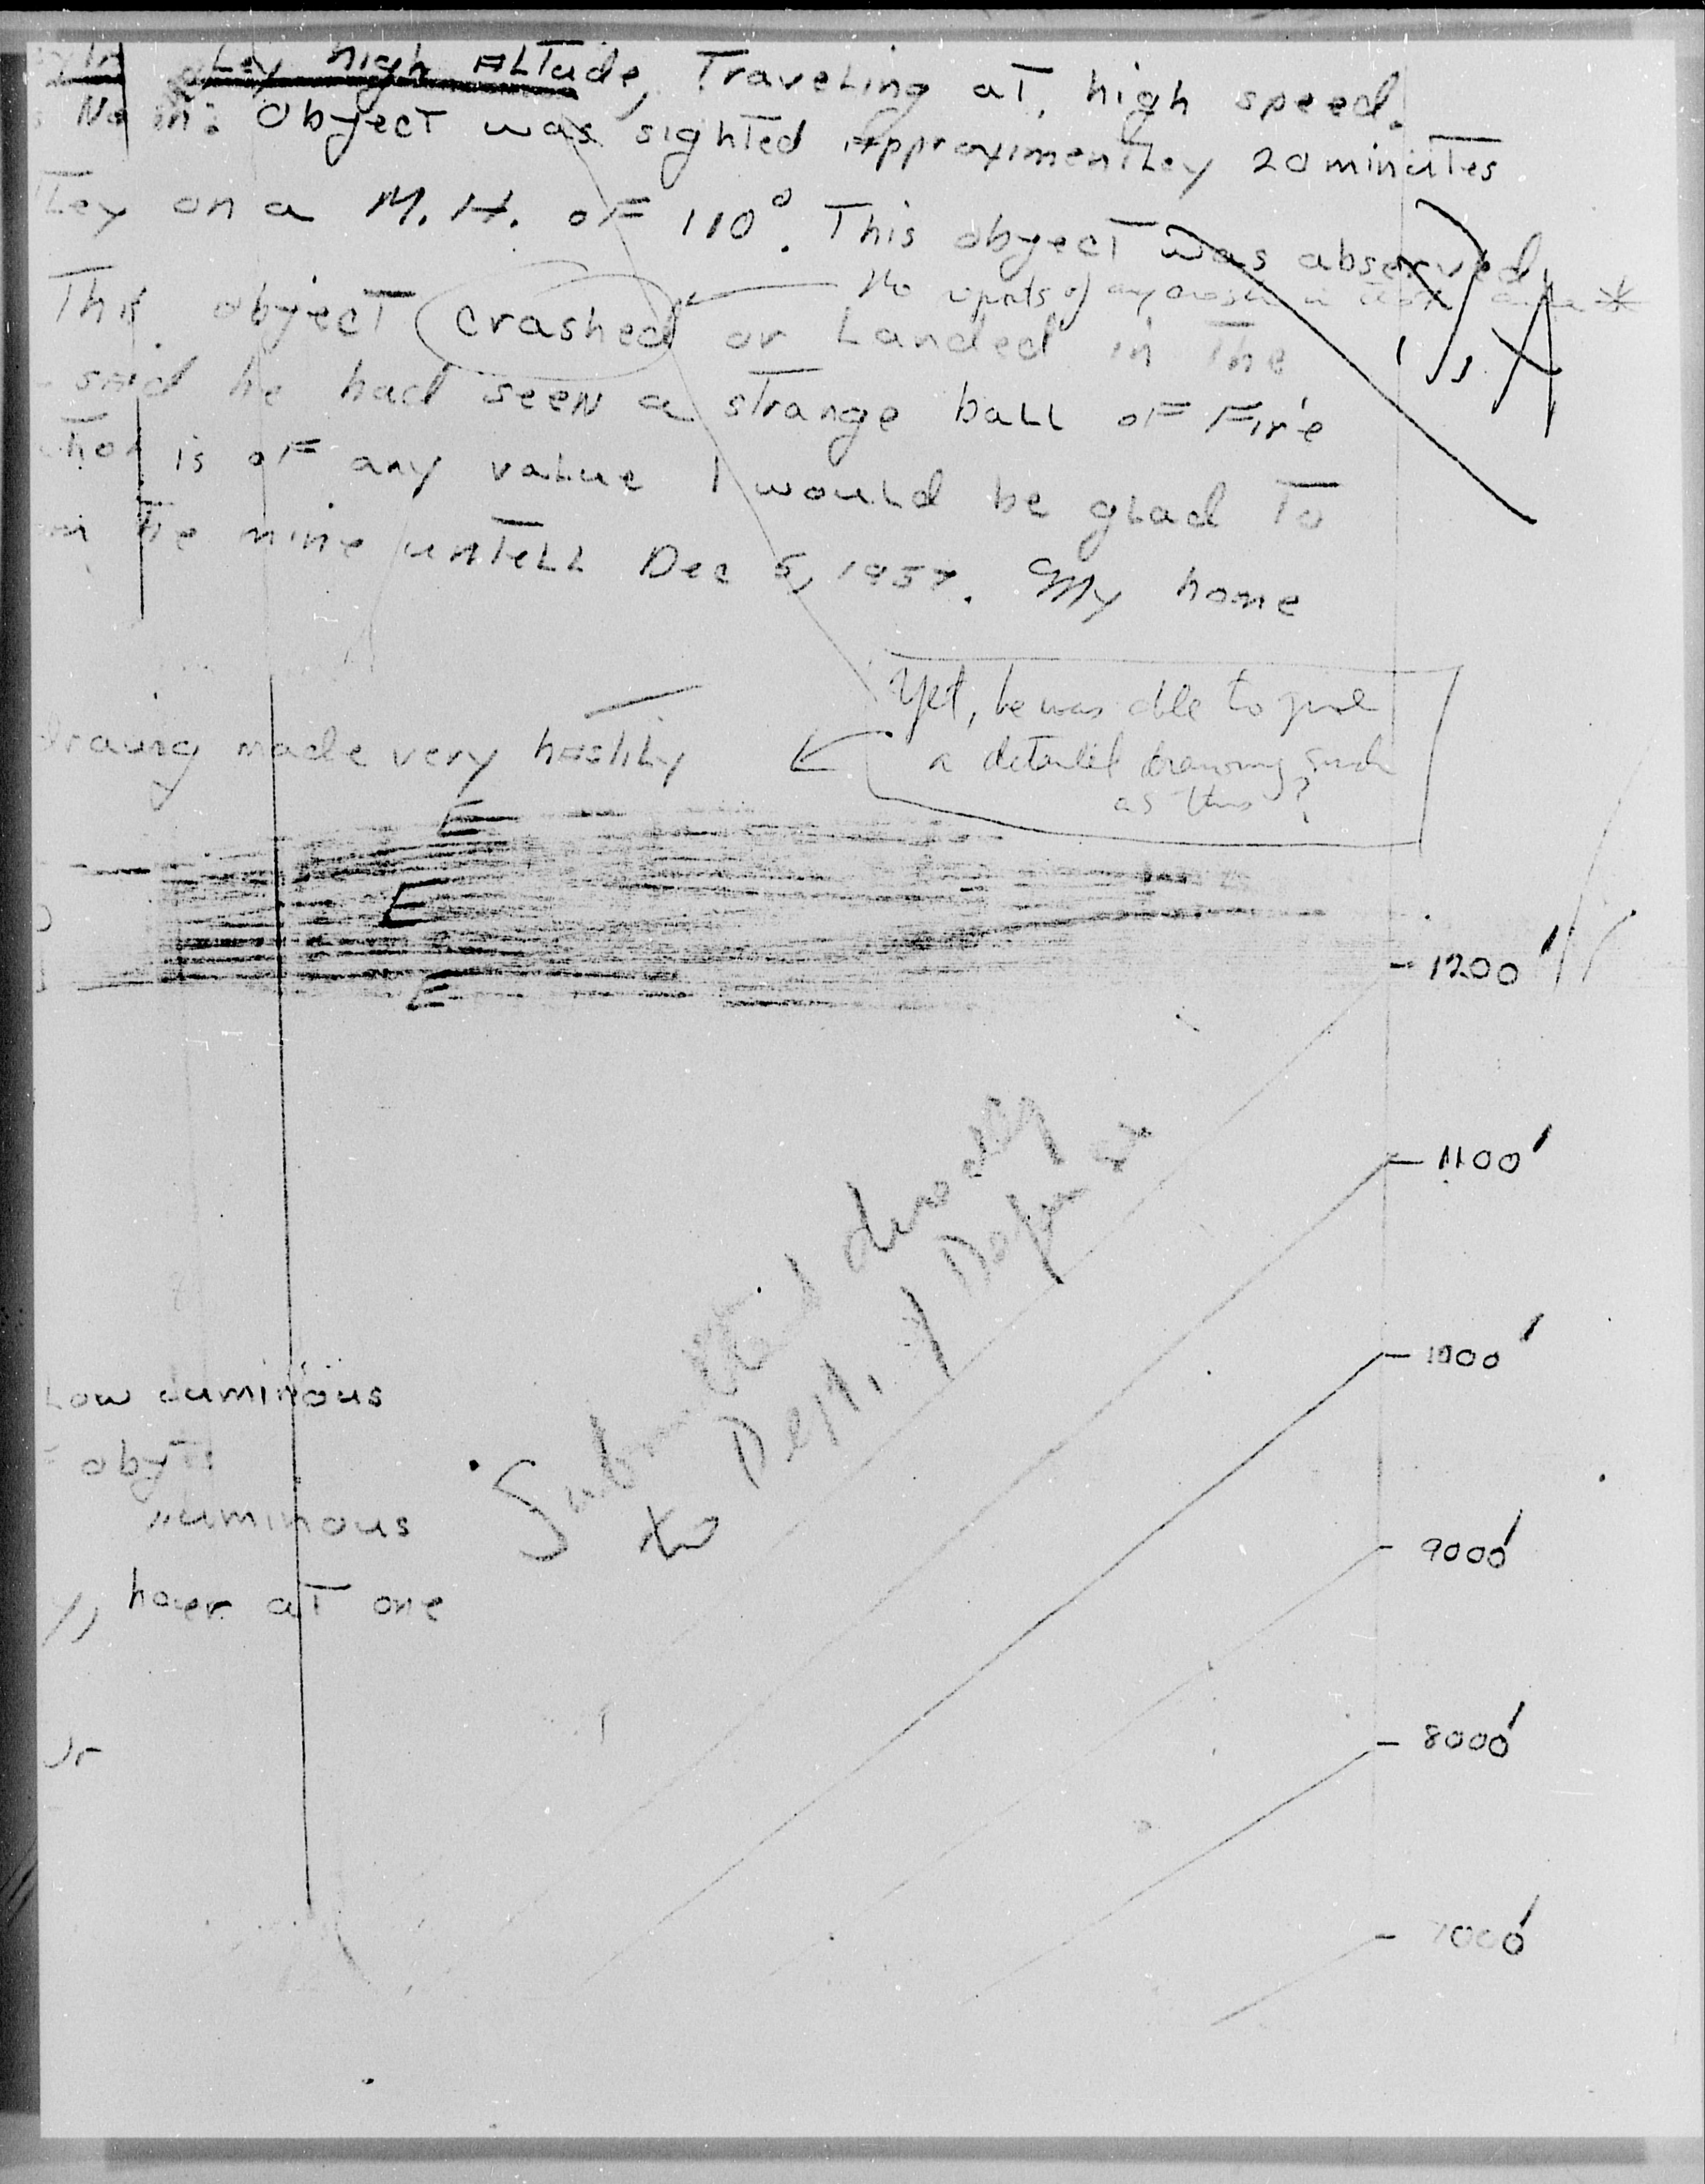 Ley high ALTude, Traveling at high speed.
No in: Object was sighted Approximentley 20 minutes
Ley on a M.H. of 110°. This obyect was observed
No reports of any
This object crashed or Landed in The
said he had seen a strange ball of Fire
is of any value I would be glad To
be mine untell Dec 5, 1957. My home
Yet, he was able to give
a detailed drawing such
as this?
drawing made very hastily
E
E
E
1200'
1100'
1000'
9000'
8000'
7000'
Submitted directly
to Dept. of Defense
Low Luminous
obyt
Luminous
hover at one
or